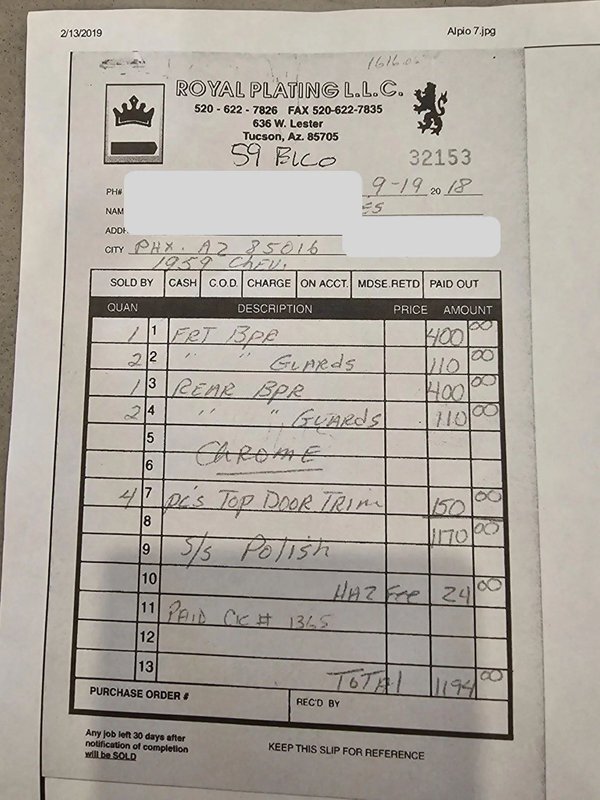 2/13/2019 Alpio 7.jpg
ROYAL PLATING L.L.C.
520 - 622 - 7826 FAX 520-622-7835
636 W. Lester
Tucson, Az. 85705
59 BLCO
32153
PH# 9-19 20 18
NAM ES
ADD
CITY PHX. AZ 85016
1959 CHEV.
SOLD BY CASH C.O.D. CHARGE ON ACCT. MDSE.RETD PAID OUT
QUAN DESCRIPTION PRICE AMOUNT
1 1 FRT BPR 400 00
2 2 " " GUARDS 110 00
1 3 REAR BPR 400 00
2 4 " " GUARDS 110 00
5
6 CHROME
4 7 pc's TOP DOOR TRIM 150 00
8 1170 00
9 S/S Polish
10 HAZ Fee 24 00
11 PAID CK# 1365
12
13 TOTAl 1194 00
PURCHASE ORDER # REC'D BY
Any job left 30 days after
notification of completion
will be SOLD
KEEP THIS SLIP FOR REFERENCE